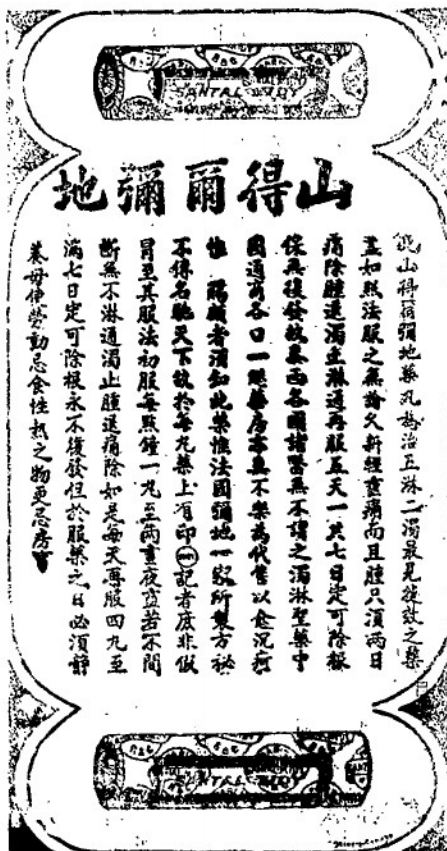 SANTAL MIDY
山得爾彌地
山得爾彌地藥丸為治五淋二濁最見後效之藥
蓋如照法服之無論久新輕重痛而且腫只須兩日
痛除腫退濁止淋通再服五天一共七日定可除根
保無復發故泰西各國諸醫無不謂之濁淋聖藥中
國通商各口一總藥房亦無不樂為代售以愈沉疴
惟 賜顧者須知此藥惟法國彌地一家所製方祕
不傳名馳天下故於每丸藥上有印記者庶非假
冒至其服法初服每點鐘一丸至兩晝夜若不間
斷無不淋通濁止腫退痛除如是每天再服四丸至
滿七日定可除根永不復發但於服藥之日必須靜
養毋使勞動忌食性熱之物更忌房事
SANTAL MIDY